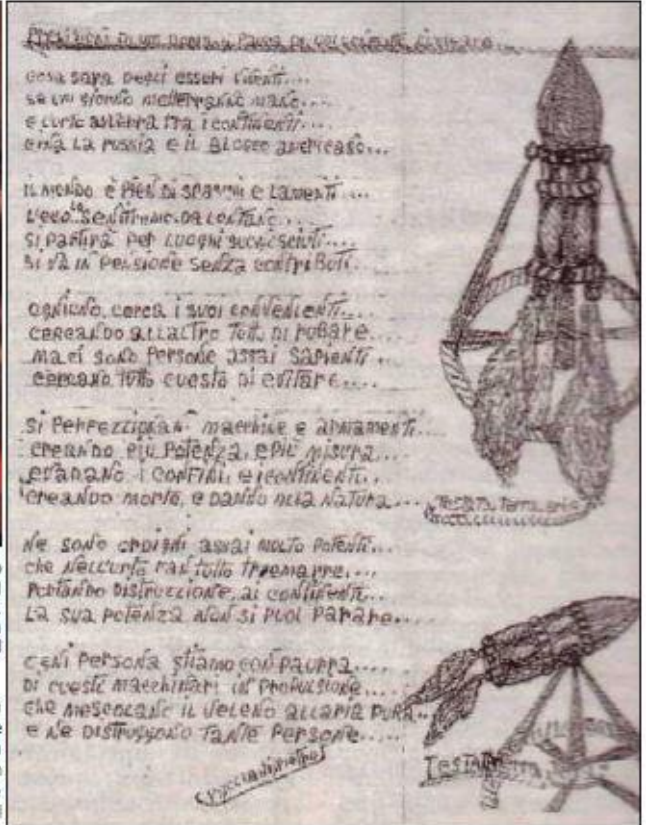 cosa sara degli esseri viventi....
se un giorno metterranno mano....
tra i continenti....
La russia e il Blocco americano...
il mondo è pien di spavini e Lamenti...
L'eco Lo sentiremo. da Lontano....
si partira per Luoghi sconosciuti....
si va in Pensione senza contributi.
ogniuno, cerca i suoi convenienti...
cercando allaltro tutto di rubare...
ma ci sono Persone assai Sapienti,
cercano tutto cuesto di evitare....
si Perfezzionan macchine e armamenti...
creando più Potenza, e più misura...
evadano i confini, e icontinenti...
creando morte, e danno alla natura...
ne sono ordigni assai molto Potenti...
che nell'urto fan tutto tremarre....
Portando Distruccione, ai continenti...
La sua Potenza non si puol Parare...
Persona stiamo con paurra....
Di cuesti macchinari in Propulsione....
che mescolano il veleno allaria pura..
e ne distrussono tante Persone....
Testata terra aria
Testata